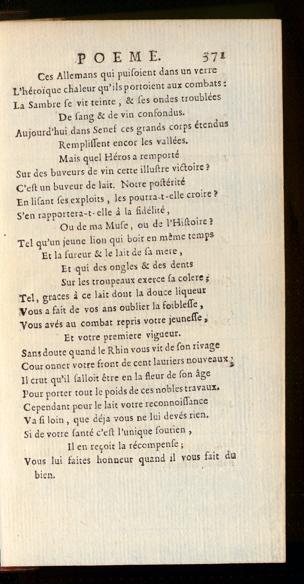 POEME. 371
Ces Allemans qui puisoient dans un verre
L'héroïque chaleur qu'ils portoient aux combats :
La Sambre se vit teinte, & ses ondes troublées
De sang & de vin confondus.
Aujourd'hui dans Senef ces grands corps étendus
Remplissent encor les vallées.
Mais quel Héros a remporté
Sur des buveurs de vin cette illustre victoire ?
C'est un buveur de lait. Notre postérité
En lisant ses exploits, les pourra-t-elle croire ?
S'en rapportera-t-elle à la fidélité,
Ou de ma Muse, ou de l'Histoire ?
Tel qu'un jeune lion qui boit en même temps
Et la fureur & le lait de sa mere,
Et qui des ongles & des dents
Sur les troupeaux exerce sa colere ;
Tel, graces à ce lait dont la douce liqueur
Vous a fait de vos ans oublier la foiblesse,
Vous avés au combat repris votre jeunesse,
Et votre premiere vigueur.
Sans doute quand le Rhin vous vit de son rivage
Couronner votre front de cent lauriers nouveaux ;
Il crut qu'il falloit être en la fleur de son âge
Pour porter tout le poids de ces nobles travaux.
Cependant pour le lait votre reconnoissance
Va si loin, que déja vous ne lui devés rien.
Si de votre santé c'est l'unique soutien,
Il en reçoit la récompense ;
Vous lui faites honneur quand il vous fait du
bien.